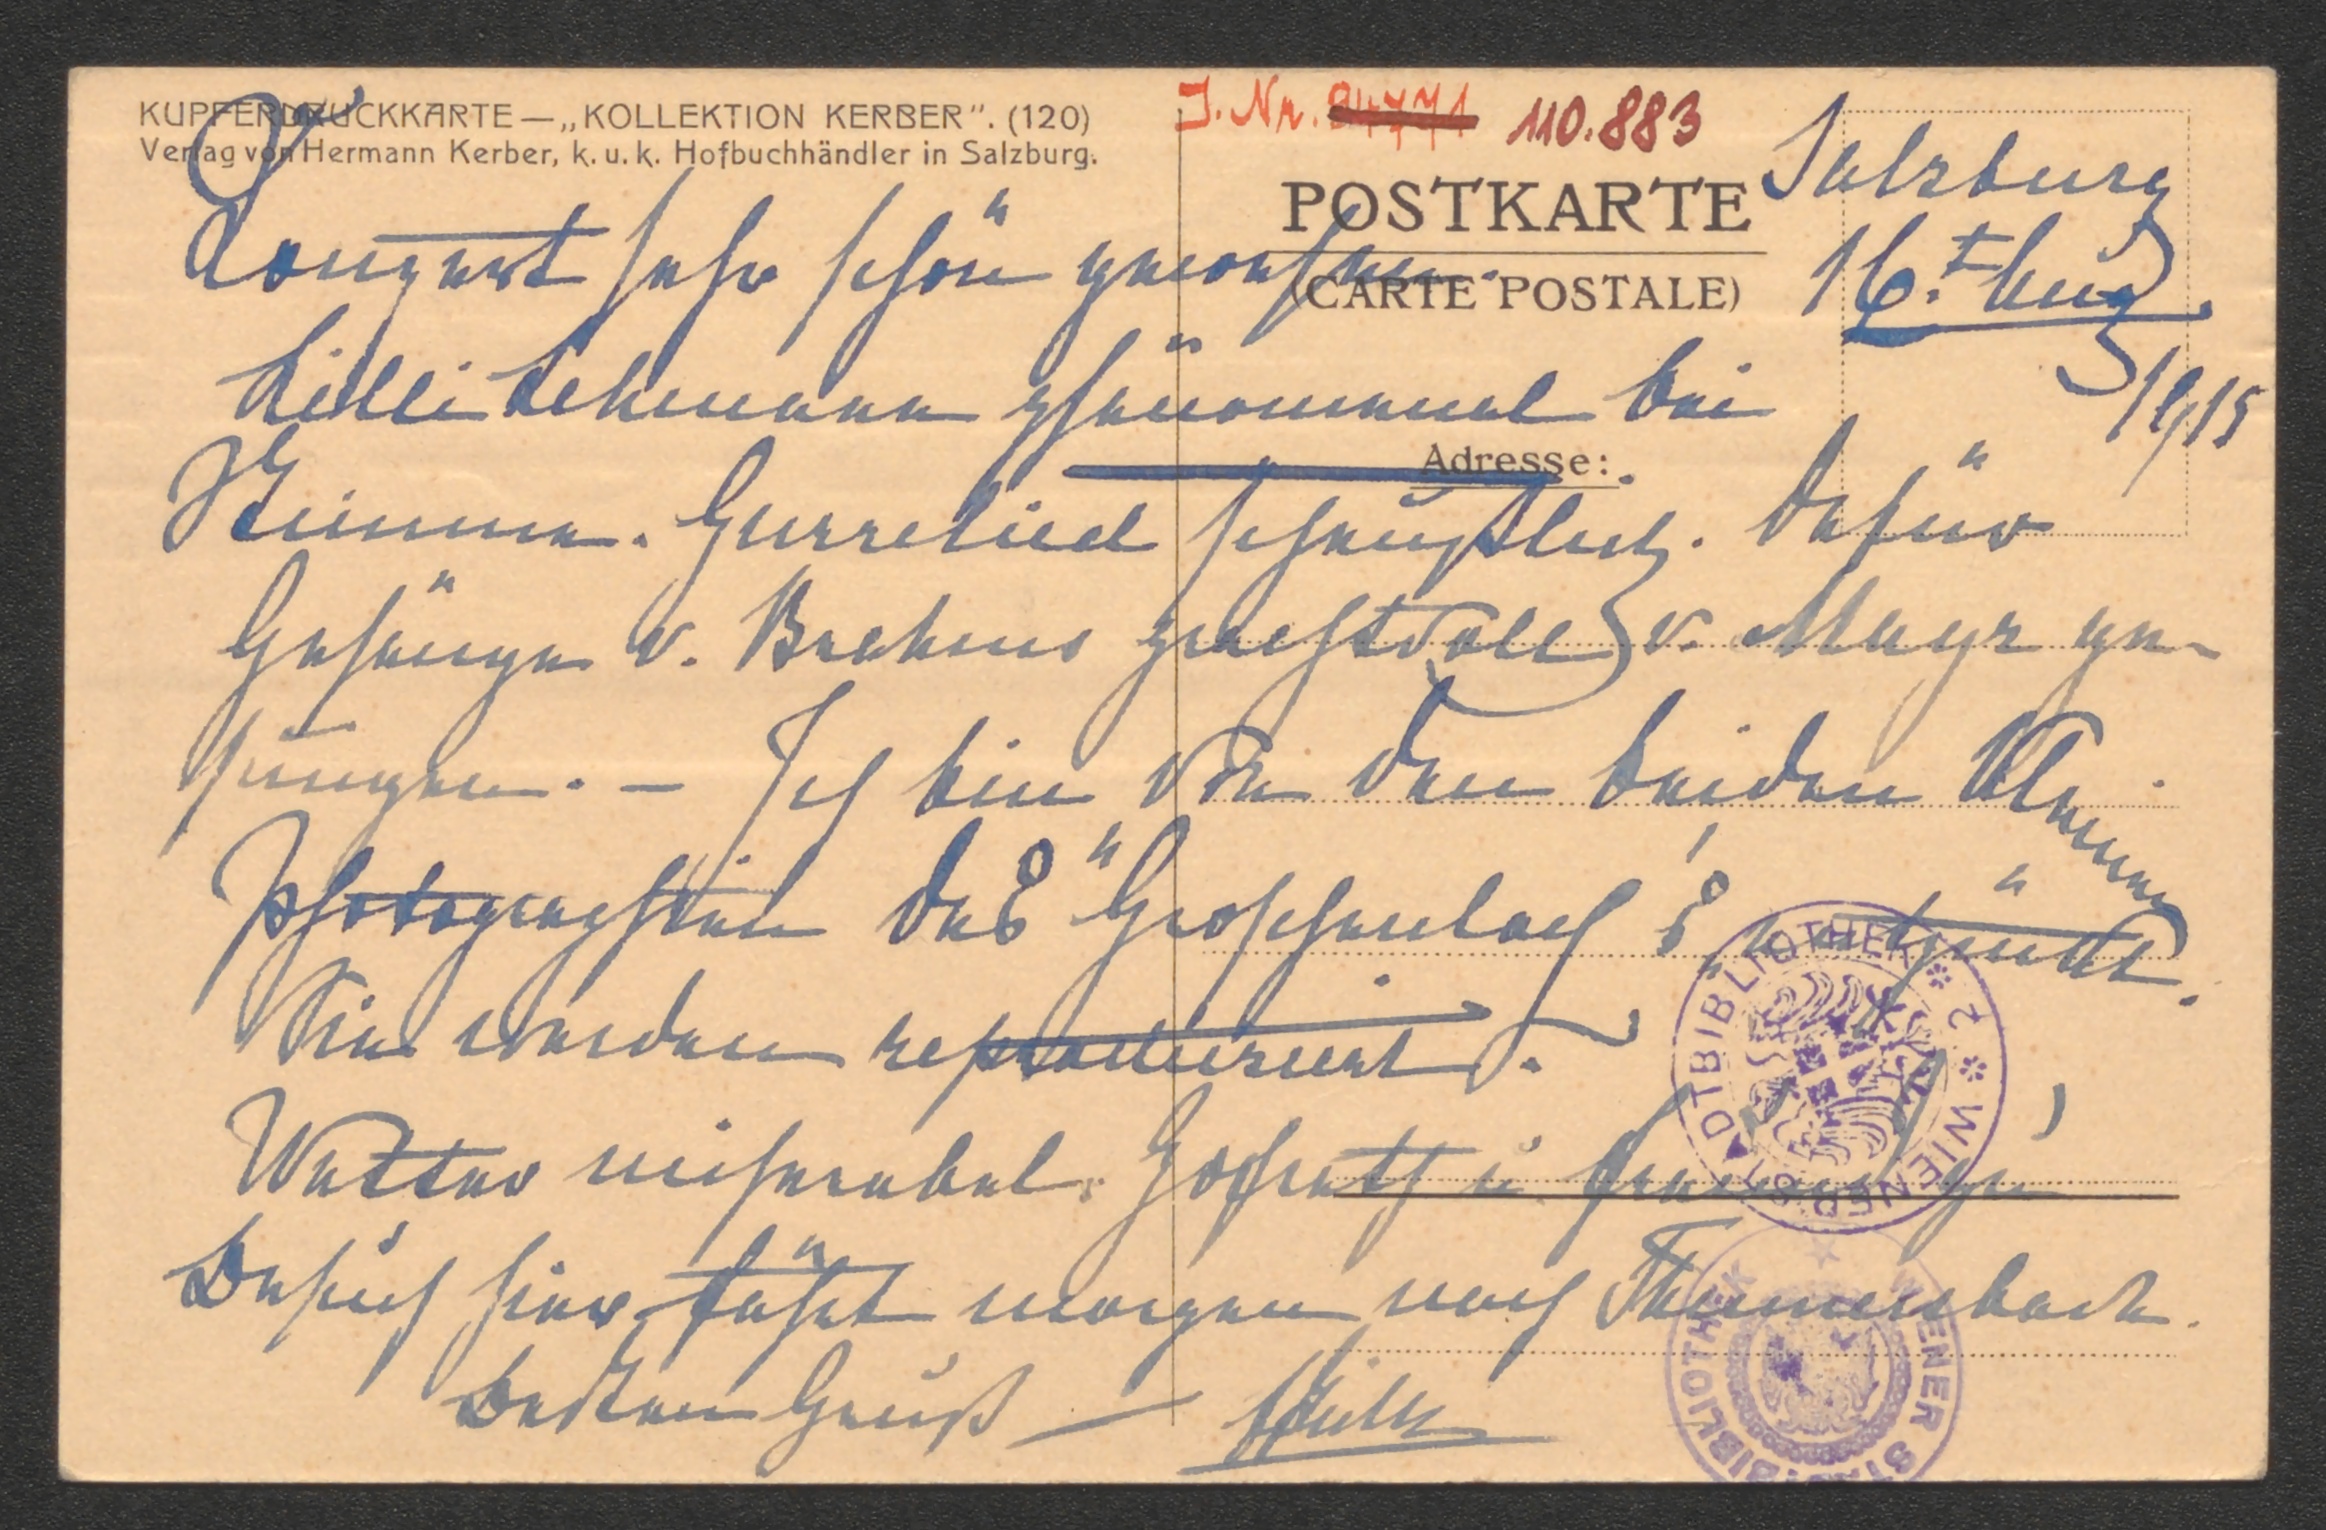 KUPFERDRUCKKARTE — „KOLLEKTION KERBER". (120)
Verlag von Hermann Kerber, k. u. k. Hofbuchhändler in Salzburg.
J. Nr. 84771 110.883
POSTKARTE
(CARTE POSTALE)
Adresse:
Salzburg
16. Aug.
1915
Conzert sehr schön gewesen.
Lilli Lehmann phänomenal bei
Stimme. Gurrelied scheußlich. Dafür
Gesänge v. Brahms prachtvoll v. Mayr ge-
sungen. — Ich bin von den beiden kleinen
Photographien des Groschenbach's entzückt.
Sie werden reproduziert.
Wetter miserabel. Hofrath u. Frau zu
Besuch hier fährt morgen nach Thumersbach.
Besten Gruß —
WIENER STADTBIBLIOTHEK * 2 *
WIENER STADTBIBLIOTHEK